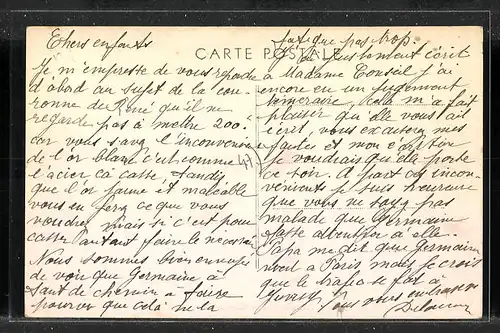 Chers enfants
CARTE POSTALE
Je m'empresse de vous repondre
d'abord au sujet de la cou-
ronne de René qu'il ne
regarde pas à mettre 200.
car vous savez l'inconvenient
de l'or blanc c'est comme
l'acier ça casse, tandis
que l'or jaune et maleable
vous en ferez ce que vous
voudrez mais si c'est pour
casser autant faire le necessaire
Nous sommes bien ennuyés
de voir que Germaine à
tant de chemin à faire
pourvu que celà ne la
fatigue pas trop.
justement écrit
à Madame Conseil j'ai
encore eu un jugement
temeraire, celà m'a fait
plaisir qu'elle vous ait
ecrit, vous excuserez mes
fautes et mon ecriture
je voudrais qu'elle porte
ce ton. A part ces incon-
venients je suis heureuse
que vous ne soyez pas
malade que Germaine
fasse attention à elle.
Papa me dit que Germaine
à Paris, mais je crois
que le trajet se fait à
vous embrassons
47